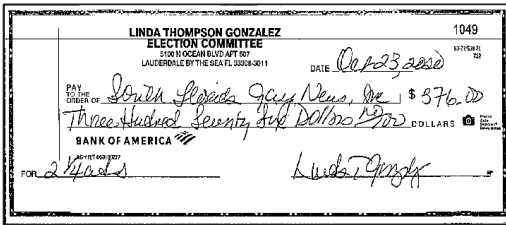 LINDA THOMPSON GONZALEZ
ELECTION COMMITTEE
5100 N OCEAN BLVD APT 607
LAUDERDALE BY THE SEA FL 33308-3011
1049
DATE Oct 23, 2020
PAY TO THE ORDER OF South Florida Gay News, Inc $ 376.00
Three Hundred Seventy Dollars DOLLARS
BANK OF AMERICA
FOR 2 1/4 ads